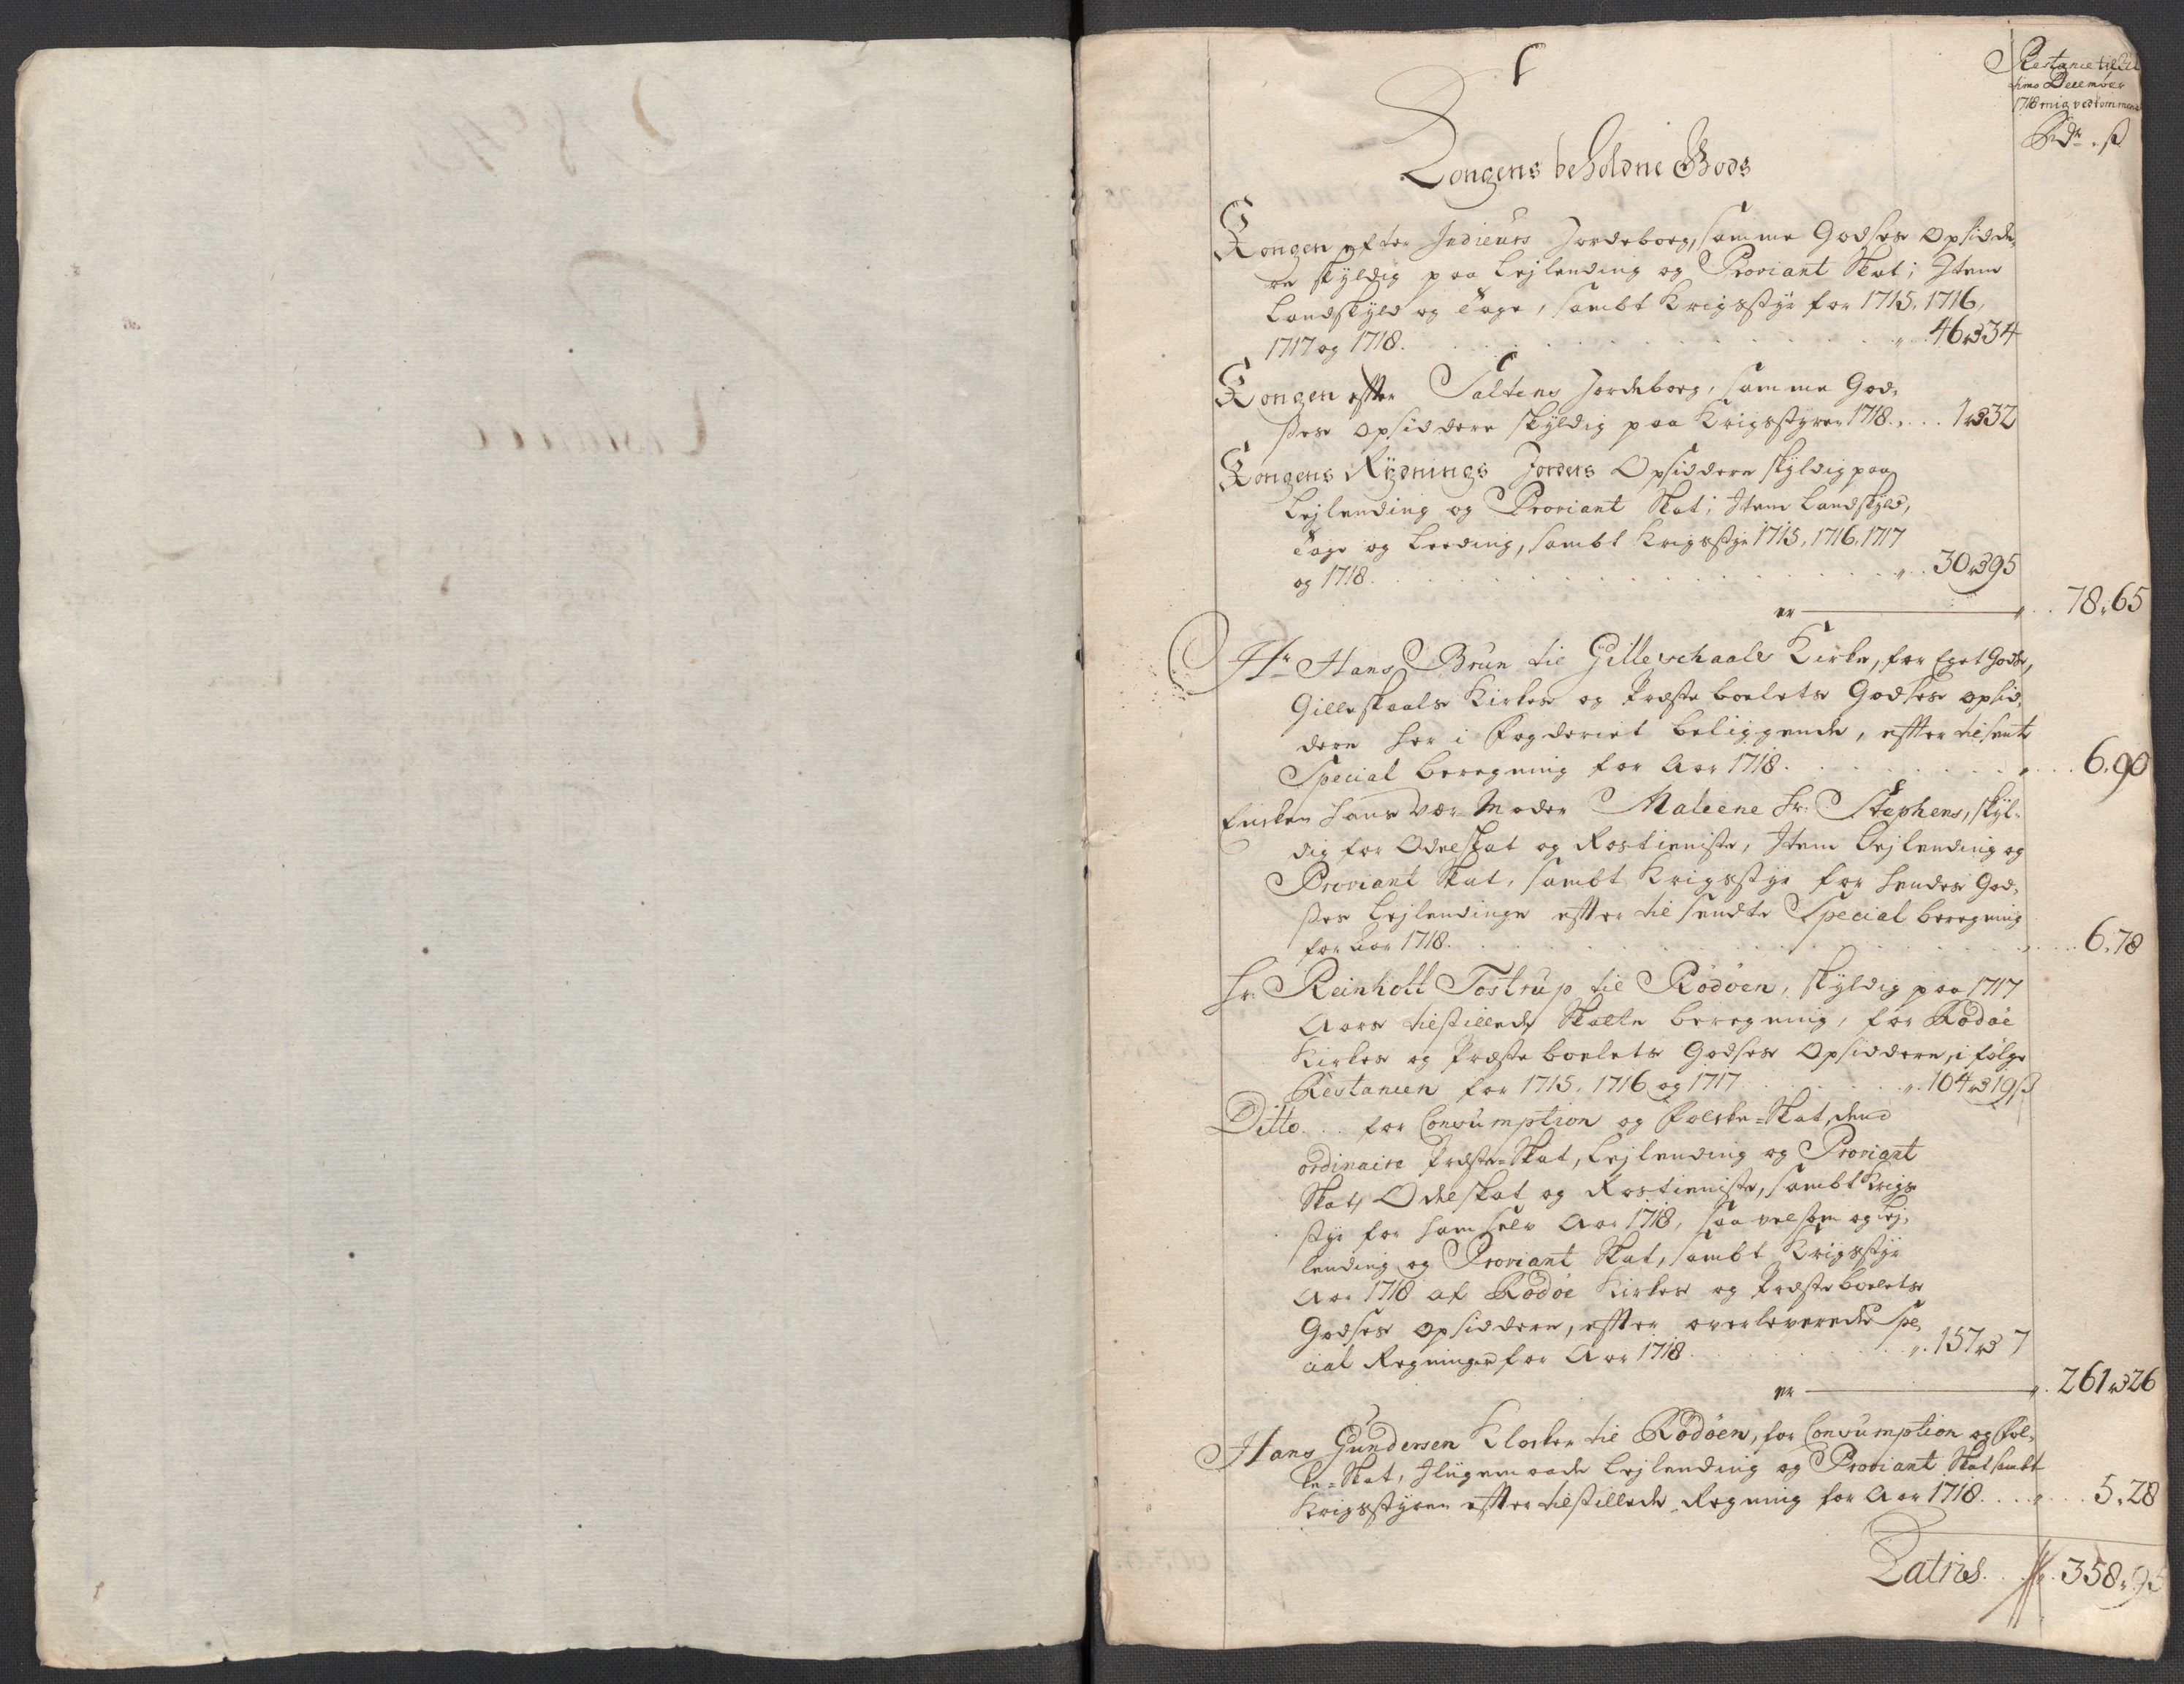 Restance til ul
timo December
1718 mig vedkommend
Rdr. ß
Kongens beholdne Gods
Kongen efter Jndieurs Jordeboeg, samme Godses Opsidde
re skyldig paa Lejlending og Proviant Skat; Jtem
Landskyld og Tage, sambt Krigsstyr for 1715, 1716,
1717 og 1718. . . . 46 rd 34
Kongen efter Saltens Jordeboeg, samme God,
ses Opsiddere skyldig paa Krigsstyren 1718. . . . 1 rd 32
Kongens Rydnings Jorders Opsiddere skyldig paa
Lejlending og Proviant Skat; Jtem Landskyld,
Tage og Leeding, sambt Krigsstyr 1715, 1716, 1717
og 1718. . . . 30 rd 95
er . . 78. 65
Hr Hans Brun til Gilleschaals Kirke, for Eget Gods,
Gilleskaals Kirkes og Præsteboelets Godses opsid,
dere her i Fogderiet beliggende, efter tilsent
Special beregning for Aar 1718. . . . 6. 90
Encken hans Vær-Moder Maleene Hr. Stephens, skyl-
dig for Odelskat og Rostieniste, Jtem Lejlending og
Proviant Skat, sambt Krigsstyr for hendes God,
ses Lejlendinge efter tilsendte Special beregning
for Aar 1718. . . . 6. 78
Hr. Reinholt Tostrup til Rödöen, skyldig paa 1717
Aars tilstillede Skatte beregning, for Rödöe
Kirkes og Præsteboelets Godses Opsiddere, i følge
Restancen for 1715, 1716 og 1717 . . . 104 rd 19 ß
Ditto . . for Consumption og Folcke-Skat, dend
ordinaire Præste-Skat, Lejlending og Proviant
Skat, Odelskat og Rostieniste, sambt Krigs
styr for ham selv Aar 1718, saavelsom og Lej,
lending og Proviant Skat, sambt Krigsstyr
Aar 1718 af Rödöe Kirkes og Præsteboelets
Godses opsiddere, efter overleverede Spe,
cial Regninger for Aar 1718 . . . 157 rd 7
er . . 261 rd 26
Hans Gundersen Klocker til Rödöen, for Consumption og Fol,
ke-Skat, Jligemaade Lejlending og Proviant Skat sambt
Krigsstyren efter tilstillede Regning for Aar 1718. . . . 5. 28
Latris . . 358. 95